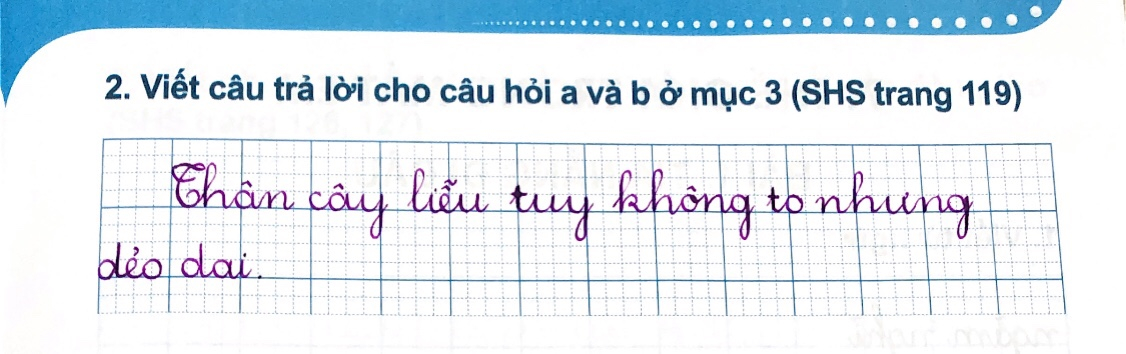 2. Viết câu trả lời cho câu hỏi a và b ở mục 3 (SHS trang 119)
Thân cây liễu tuy không to nhưng
dẻo dai.